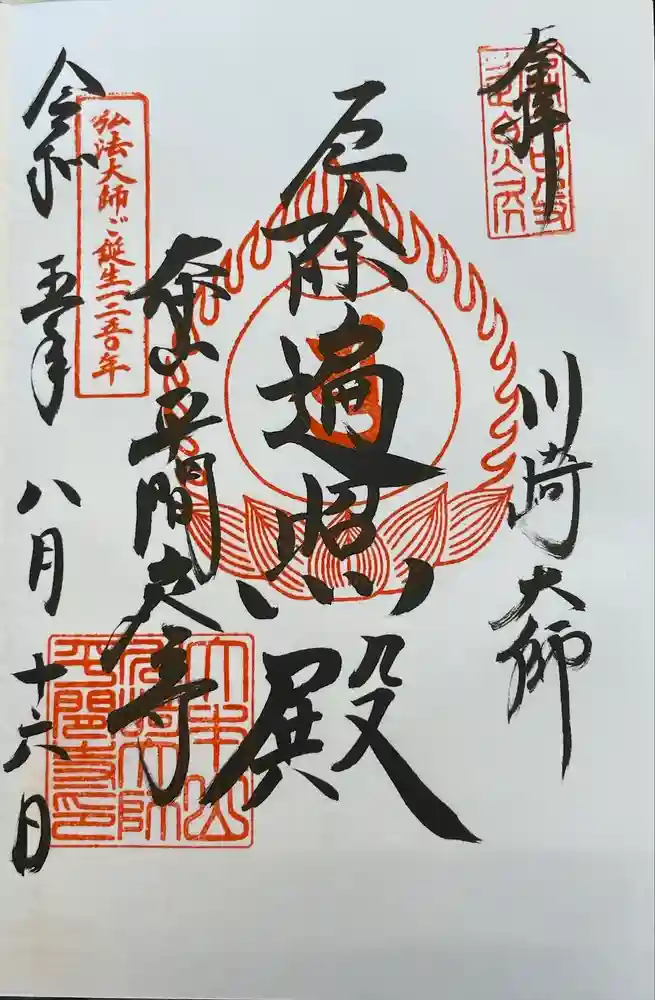 奉拝
川崎大師
厄除遍照殿
大本山平間寺
弘法大師ご誕生一二五〇年
令和五年八月十六日
大本山
川崎大師
平間寺印